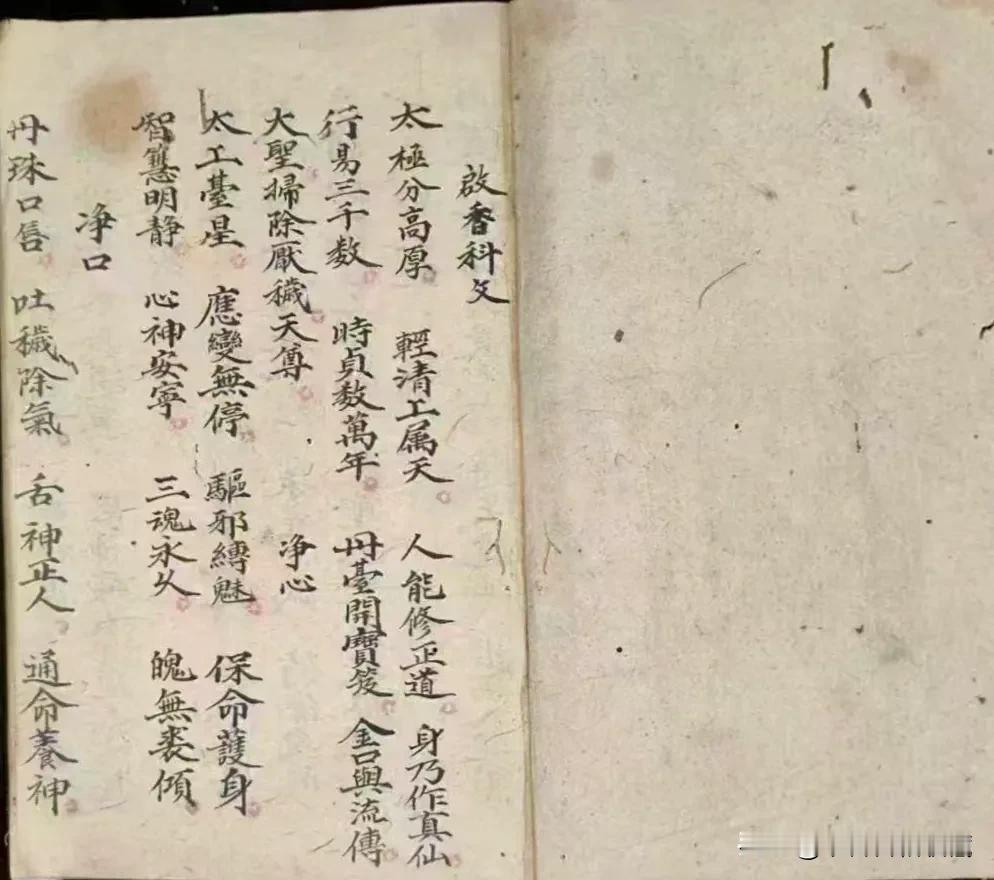 啟香科文
太極分高厚 輕清工属天 人能修正道 身乃作真仙
行易三千数 時貞数萬年 丹臺開寶笈 金口與流傳
大聖掃除厭穢天尊 净心
太工臺星 應變無停 驅邪縛魅 保命護身
智慧明静 心神安寧 三魂永久 魄無丧傾
净口
丹珠口唇 吐穢除氣 舌神正人 通命養神